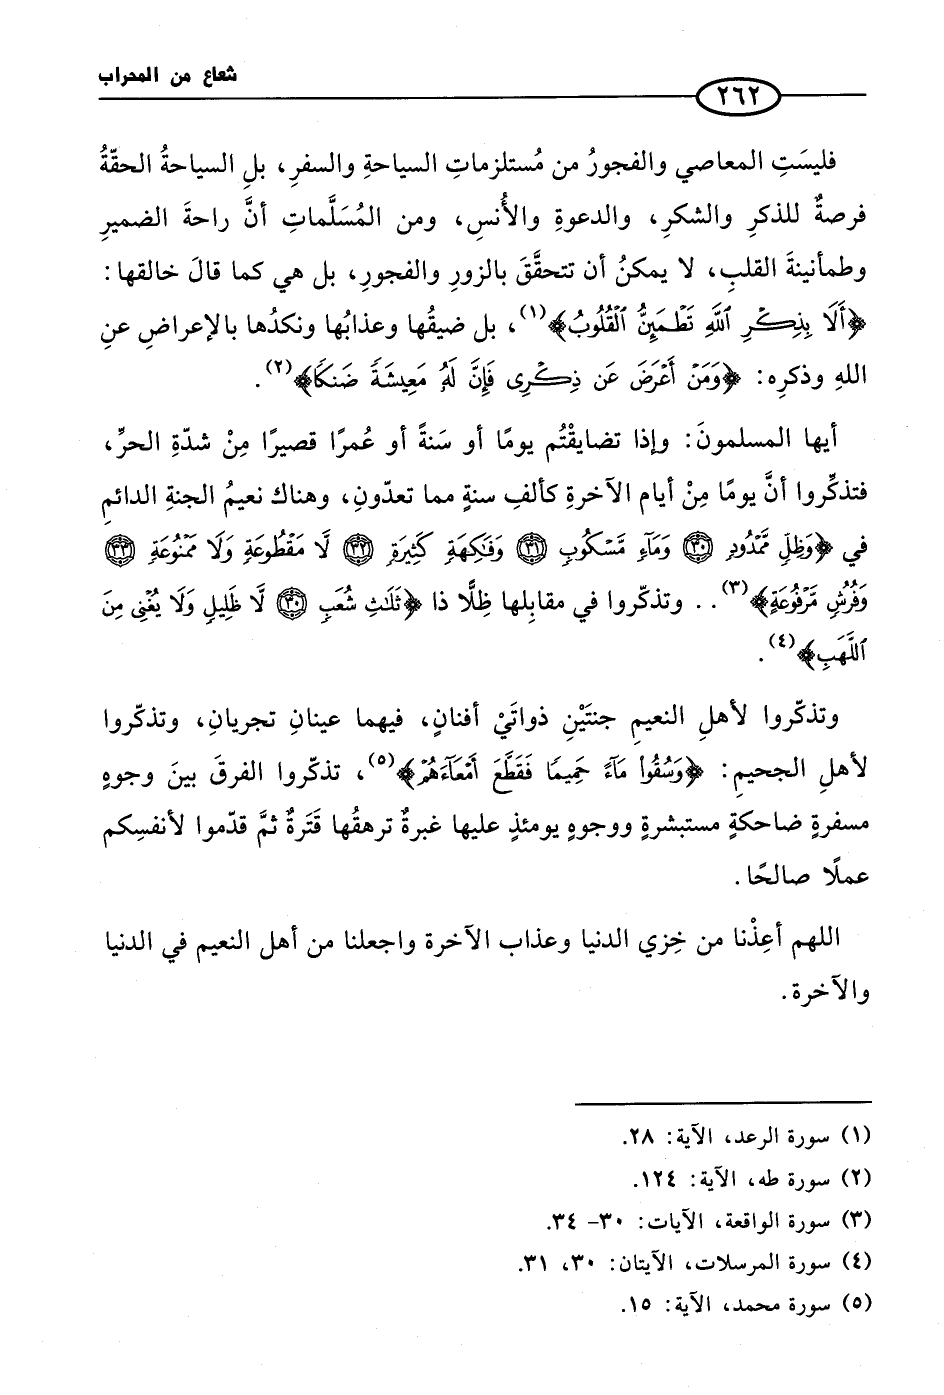 شعاع من المحراب
٢٦٢
فليسَتِ المعاصي والفجورُ من مُستلزماتِ السياحةِ والسفرِ، بلِ السياحةُ الحقّةُ
فرصةٌ للذكرِ والشكرِ، والدعوةِ والأُنسِ، ومن المُسَلَّماتِ أنَّ راحةَ الضميرِ
وطمأنينةَ القلبِ، لا يمكنُ أن تتحقَّقَ بالزورِ والفجورِ، بل هي كما قالَ خالقها:
﴿أَلَا بِذِكْرِ ٱللَّهِ تَطْمَئِنُّ ٱلْقُلُوبُ﴾(١)، بل ضيقُها وعذابُها ونكدُها بالإعراضِ عنِ
اللهِ وذكرِه: ﴿وَمَنْ أَعْرَضَ عَن ذِكْرِى فَإِنَّ لَهُۥ مَعِيشَةً ضَنكًا﴾(٢).
أيها المسلمونَ: وإذا تضايقْتُم يومًا أو سَنةً أو عُمرًا قصيرًا مِنْ شدّةِ الحرِّ،
فتذكِّروا أنَّ يومًا مِنْ أيامِ الآخرةِ كألفِ سنةٍ مما تعدّون، وهناك نعيمُ الجنةِ الدائمِ
في ﴿وَظِلٍّ مَّمْدُودٍ ٣٠ وَمَآءٍ مَّسْكُوبٍ ٣١ وَفَٰكِهَةٍ كَثِيرَةٍ ٣٢ لَّا مَقْطُوعَةٍ وَلَا مَمْنُوعَةٍ ٣٣
وَفُرُشٍ مَّرْفُوعَةٍ﴾(٣).. وتذكّروا في مقابلِها ظِلًّا ذا ﴿ثَلَٰثِ شُعَبٍ ٣٠ لَّا ظَلِيلٍ وَلَا يُغْنِى مِنَ
ٱللَّهَبِ﴾(٤).
وتذكّروا لأهلِ النعيمِ جنتَيْنِ ذواتَيْ أفنانٍ، فيهما عينانِ تجريانِ، وتذكّروا
لأهلِ الجحيمِ: ﴿وَسُقُوا۟ مَآءً حَمِيمًا فَقَطَّعَ أَمْعَآءَهُمْ﴾(٥)، تذكّروا الفرقَ بينَ وجوهٍ
مسفرةٍ ضاحكةٍ مستبشرةٍ ووجوهٍ يومئذٍ عليها غبرةٌ ترهقُها قَترةٌ ثمَّ قدّموا لأنفسِكم
عملًا صالحًا.
اللهم أعِذْنا من خِزي الدنيا وعذاب الآخرة واجعلنا من أهل النعيم في الدنيا
والآخرة.
(١) سورة الرعد، الآية: ٢٨.
(٢) سورة طه، الآية: ١٢٤.
(٣) سورة الواقعة، الآيات: ٣٠- ٣٤.
(٤) سورة المرسلات، الآيتان: ٣٠، ٣١.
(٥) سورة محمد، الآية: ١٥.